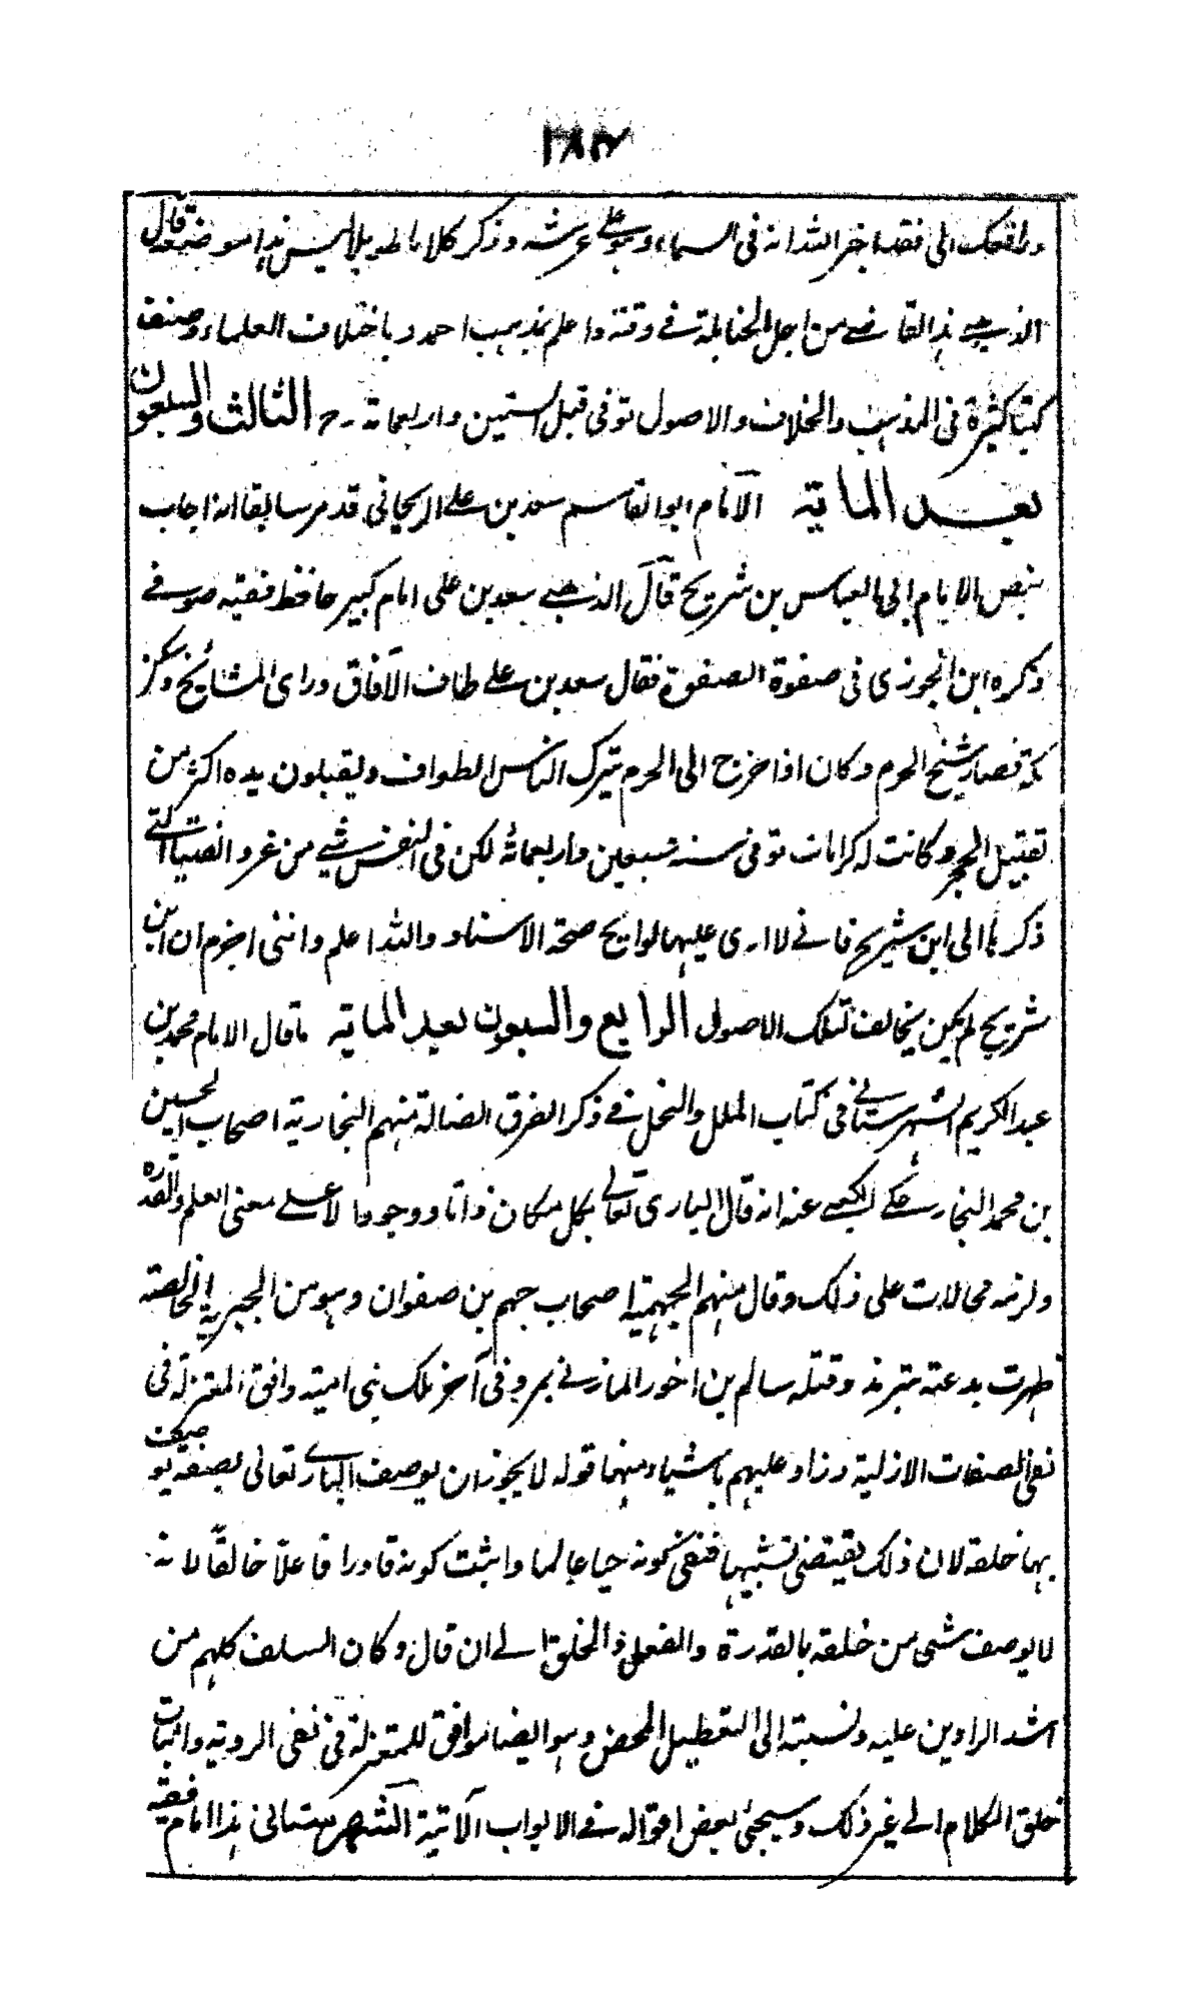 ١٨٧
ورافعک الی فقد اخبر الله انه فی السماء وهو علی عرشه وذکر کلاما طویلا لیس هذا موضعه قال
الذهبی هذا القاضی من اجل الحنابلة فی وقته واعلم بمذهب احمد وباختلاف العلماء وصنف
کتبا کثیرة فی المذهب والخلاف والاصول توفی قبل الستین واربعمائة رح الثالث والسبعون
بعد المایة الآمام ابو القاسم سعد بن علی الریحانی قد مر سابقا انه اجاب
بنص الامام ابی العباس بن شریح قآل الذهبی سعد بن علی امام کبیر حافظ فقیه صوفی
ذکره ابن الجوزی فی صفوة الصفوة فقال سعد بن علی طاف الآفاق ورای المشایخ وسکن
مکة فصار شیخ الحرم وکان اذا خرج الی الحرم یترک الناس الطواف ویقبلون یده اکثر من
تقبیل الحجر وکانت له کرامات توفی سنه سبعین واربعمائة لکن فی النفس شیء من عزو الفتیا التی
ذکرها الی ابن شریح فانی لا اری علیها لوایح صحة الاسناد والله اعلم واننی اجزم ان ابن
شریح لم یکن یخالف تلک الاصول الرابع والسبعون بعد المایة ما قال الامام محمد بن
عبد الکریم الشهرستانی فی کتاب الملل والنحل فی ذکر الفرق الضالة منهم النجاریة اصحاب الحسین
بن محمد النجار حکی الکعبی عنه انه قال الباری تعالی بکل مکان ذاتا ووجودا لا علی معنی العلم والقدرة
ولزمه محالات علی ذلک وقال منهم الجهمیة اصحاب جهم بن صفوان وهو من الجبریة الخالصة
ظهرت بدعته بترمذ وقتله سالم بن اخور المازنی بمرو فی آخر ملک بنی امیة وافق المعتزلة فی
نفی الصفات الازلیة وزاد علیهم باشیاء منها قوله لا یجوز ان یوصف الباری تعالی بصفة یوصف
بها خلقه لان ذلک یقتضی تشبیها فنفی کونه حیا عالما واثبت کونه قادرا فاعلا خالقا لانه
لا یوصف شیء من خلقه بالقدرة والفعل والخلق الی ان قال وکان السلف کلهم من
اشد الرادین علیه ونسبته الی التعطیل المحض وهو ایضا موافق للمعتزلة فی نفی الرویة واثبات
خلق الکلام الی غیر ذلک وسیجئ بعض اقواله فی الابواب الآتیة الشهرستانی هذا امام فقیه